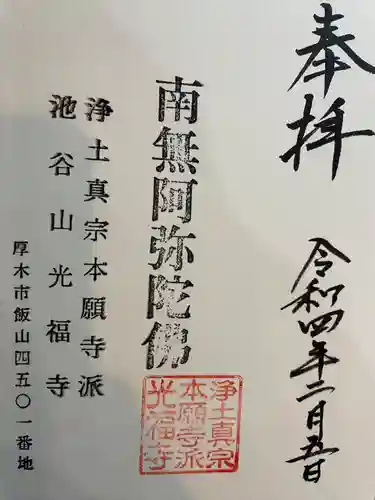 奉拝
令和四年二月五日
南無阿弥陀佛
浄土真宗本願寺派
池谷山光福寺
厚木市飯山四五〇一番地
浄土真宗
本願寺派
光福寺